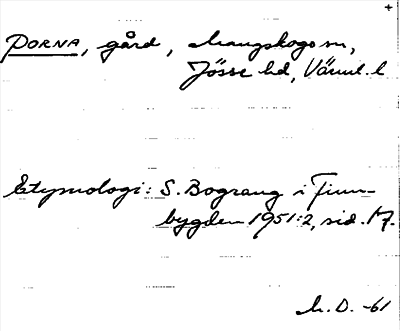 +
PORNA, gård, Mangskogs sn,
Jösse hd, Värml. l
Etymologi: S. Bograng i Finn-
bygden 1951:2, sid. 17.
M. D. -61